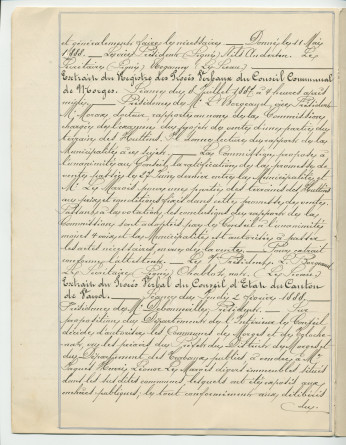 et généralement faire le nécessaire — Donné le 11 Mai
1888. — Le vice Président (signé) Nils Anderson. Le
Secrétaire (signé) (Le Sceau)
Extrait du Registre des Procès Verbaux du Conseil Communal
de Morges. — Séance du 8 Juillet 1887 à 4 heures après
midi. — Présidence de Mr L. vice Président
Mr Docteur, rapporte au nom de la Commission
chargée de l'examen du projet de vente d'une partie du
Il donne lecture du rapport de la
Municipalité à ce sujet. — La Commission propose à
l'unanimité au Conseil, la ratification de la promesse de
vente passée le 27 Juin dernier entre la Municipalité et
Mr Le Marois pour une partie des terrains des
au prix et conditions fixés dans cette promesse de vente.
Passant à la votation, les conclusions du rapport de la
Commission sont adoptées par le Conseil à l'unanimité
moins 4 voix et la Municipalité est autorisée à passer
les actes nécessaires en vue de la vente. — Pour extrait
conforme, l'atteste — Le Vce Président L.
Le Secrétaire (signé) Charles (Le Sceau)
Extrait du Procès Verbal du Conseil d'Etat du Canton
de Vaud. — Séance du Jeudi 2 février 1888.
Présidence de Mr Debonneville, Président. — Sur
proposition du Département de l'Intérieur le Conseil
décide d'autoriser les Communes de Morges et
vu les préavis du Préfet du District de Morges et
du Département des Travaux publics, à vendre à Mr
Jaques Marie Léonor Le Marois divers immeubles situés
dans les susdites communes lesquels ont été exposés aux
enchères publiques, le tout conformément aux délibérés
du